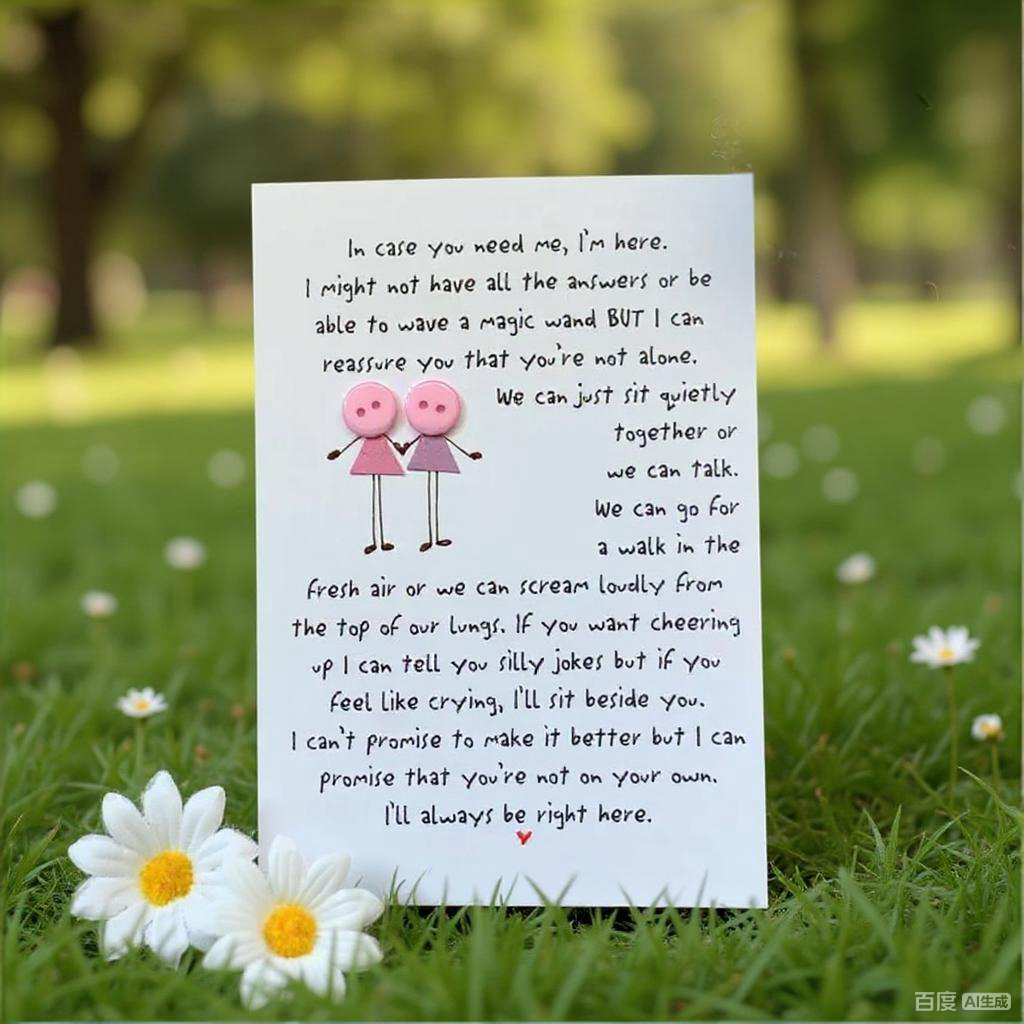 In case you need me, I'm here.
I might not have all the answers or be
able to wave a magic wand BUT I can
reassure you that you're not alone.
We can just sit quietly
together or
we can talk.
We can go for
a walk in the
fresh air or we can scream loudly from
the top of our lungs. If you want cheering
up I can tell you silly jokes but if you
feel like crying, I'll sit beside you.
I can't promise to make it better but I can
promise that you're not on your own.
I'll always be right here.
百度 AI生成